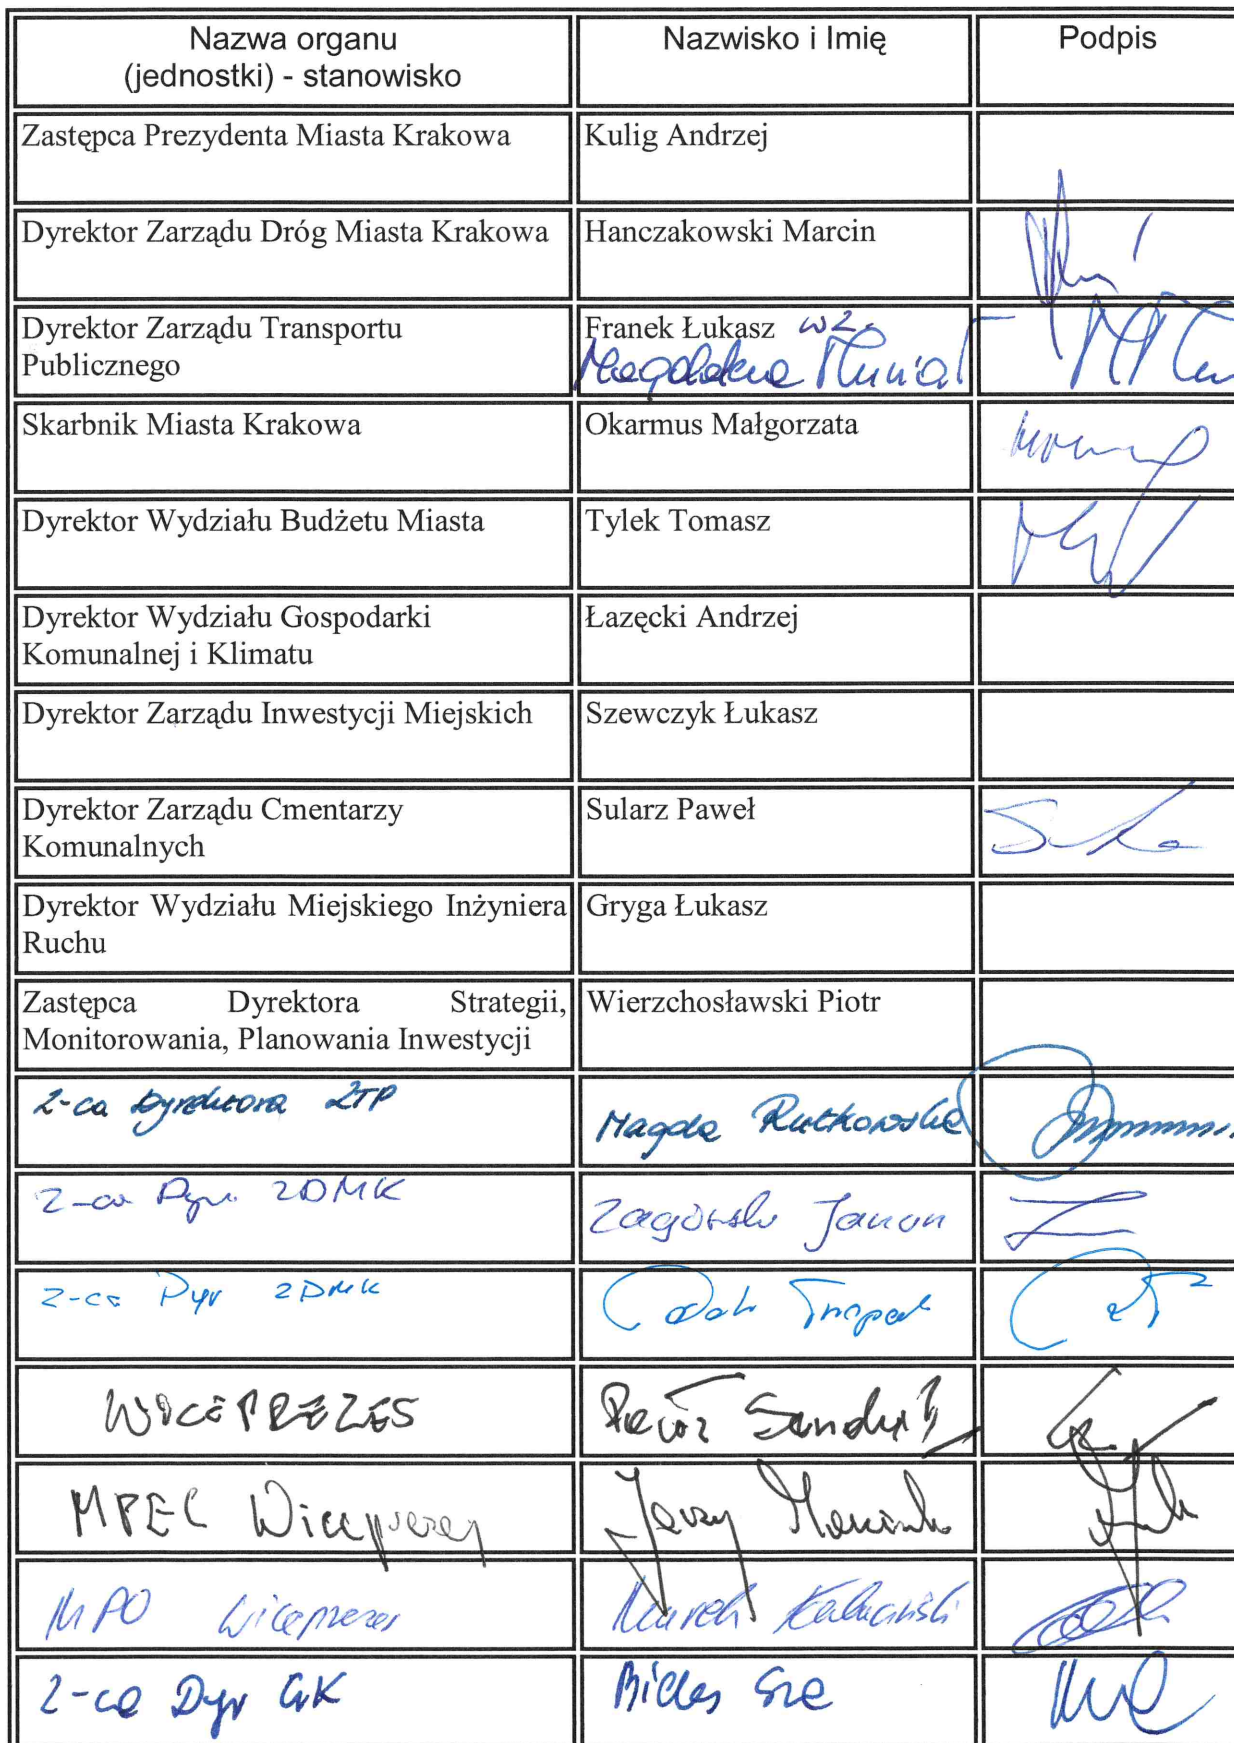 Nazwa organu
(jednostki) - stanowisko
Nazwisko i Imię
Podpis
Zastępca Prezydenta Miasta Krakowa
Kulig Andrzej
Dyrektor Zarządu Dróg Miasta Krakowa
Hanczakowski Marcin
Dyrektor Zarządu Transportu
Publicznego
Franek Łukasz wz.
Magdalena
Skarbnik Miasta Krakowa
Okarmus Małgorzata
Dyrektor Wydziału Budżetu Miasta
Tylek Tomasz
Dyrektor Wydziału Gospodarki
Komunalnej i Klimatu
Łazęcki Andrzej
Dyrektor Zarządu Inwestycji Miejskich
Szewczyk Łukasz
Dyrektor Zarządu Cmentarzy
Komunalnych
Sularz Paweł
Dyrektor Wydziału Miejskiego Inżyniera
Ruchu
Gryga Łukasz
Zastępca Dyrektora Strategii,
Monitorowania, Planowania Inwestycji
Wierzchosławski Piotr
Z-ca Dyrektora ZTP
Magda Rutkowska
Z-ca Dyr. ZDMK
Z-ca Dyr ZDMK
WICEPREZES
MPEC Wiceprezes
Jerzy
MPO Wiceprezes
Marek
Z-ca Dyr GK